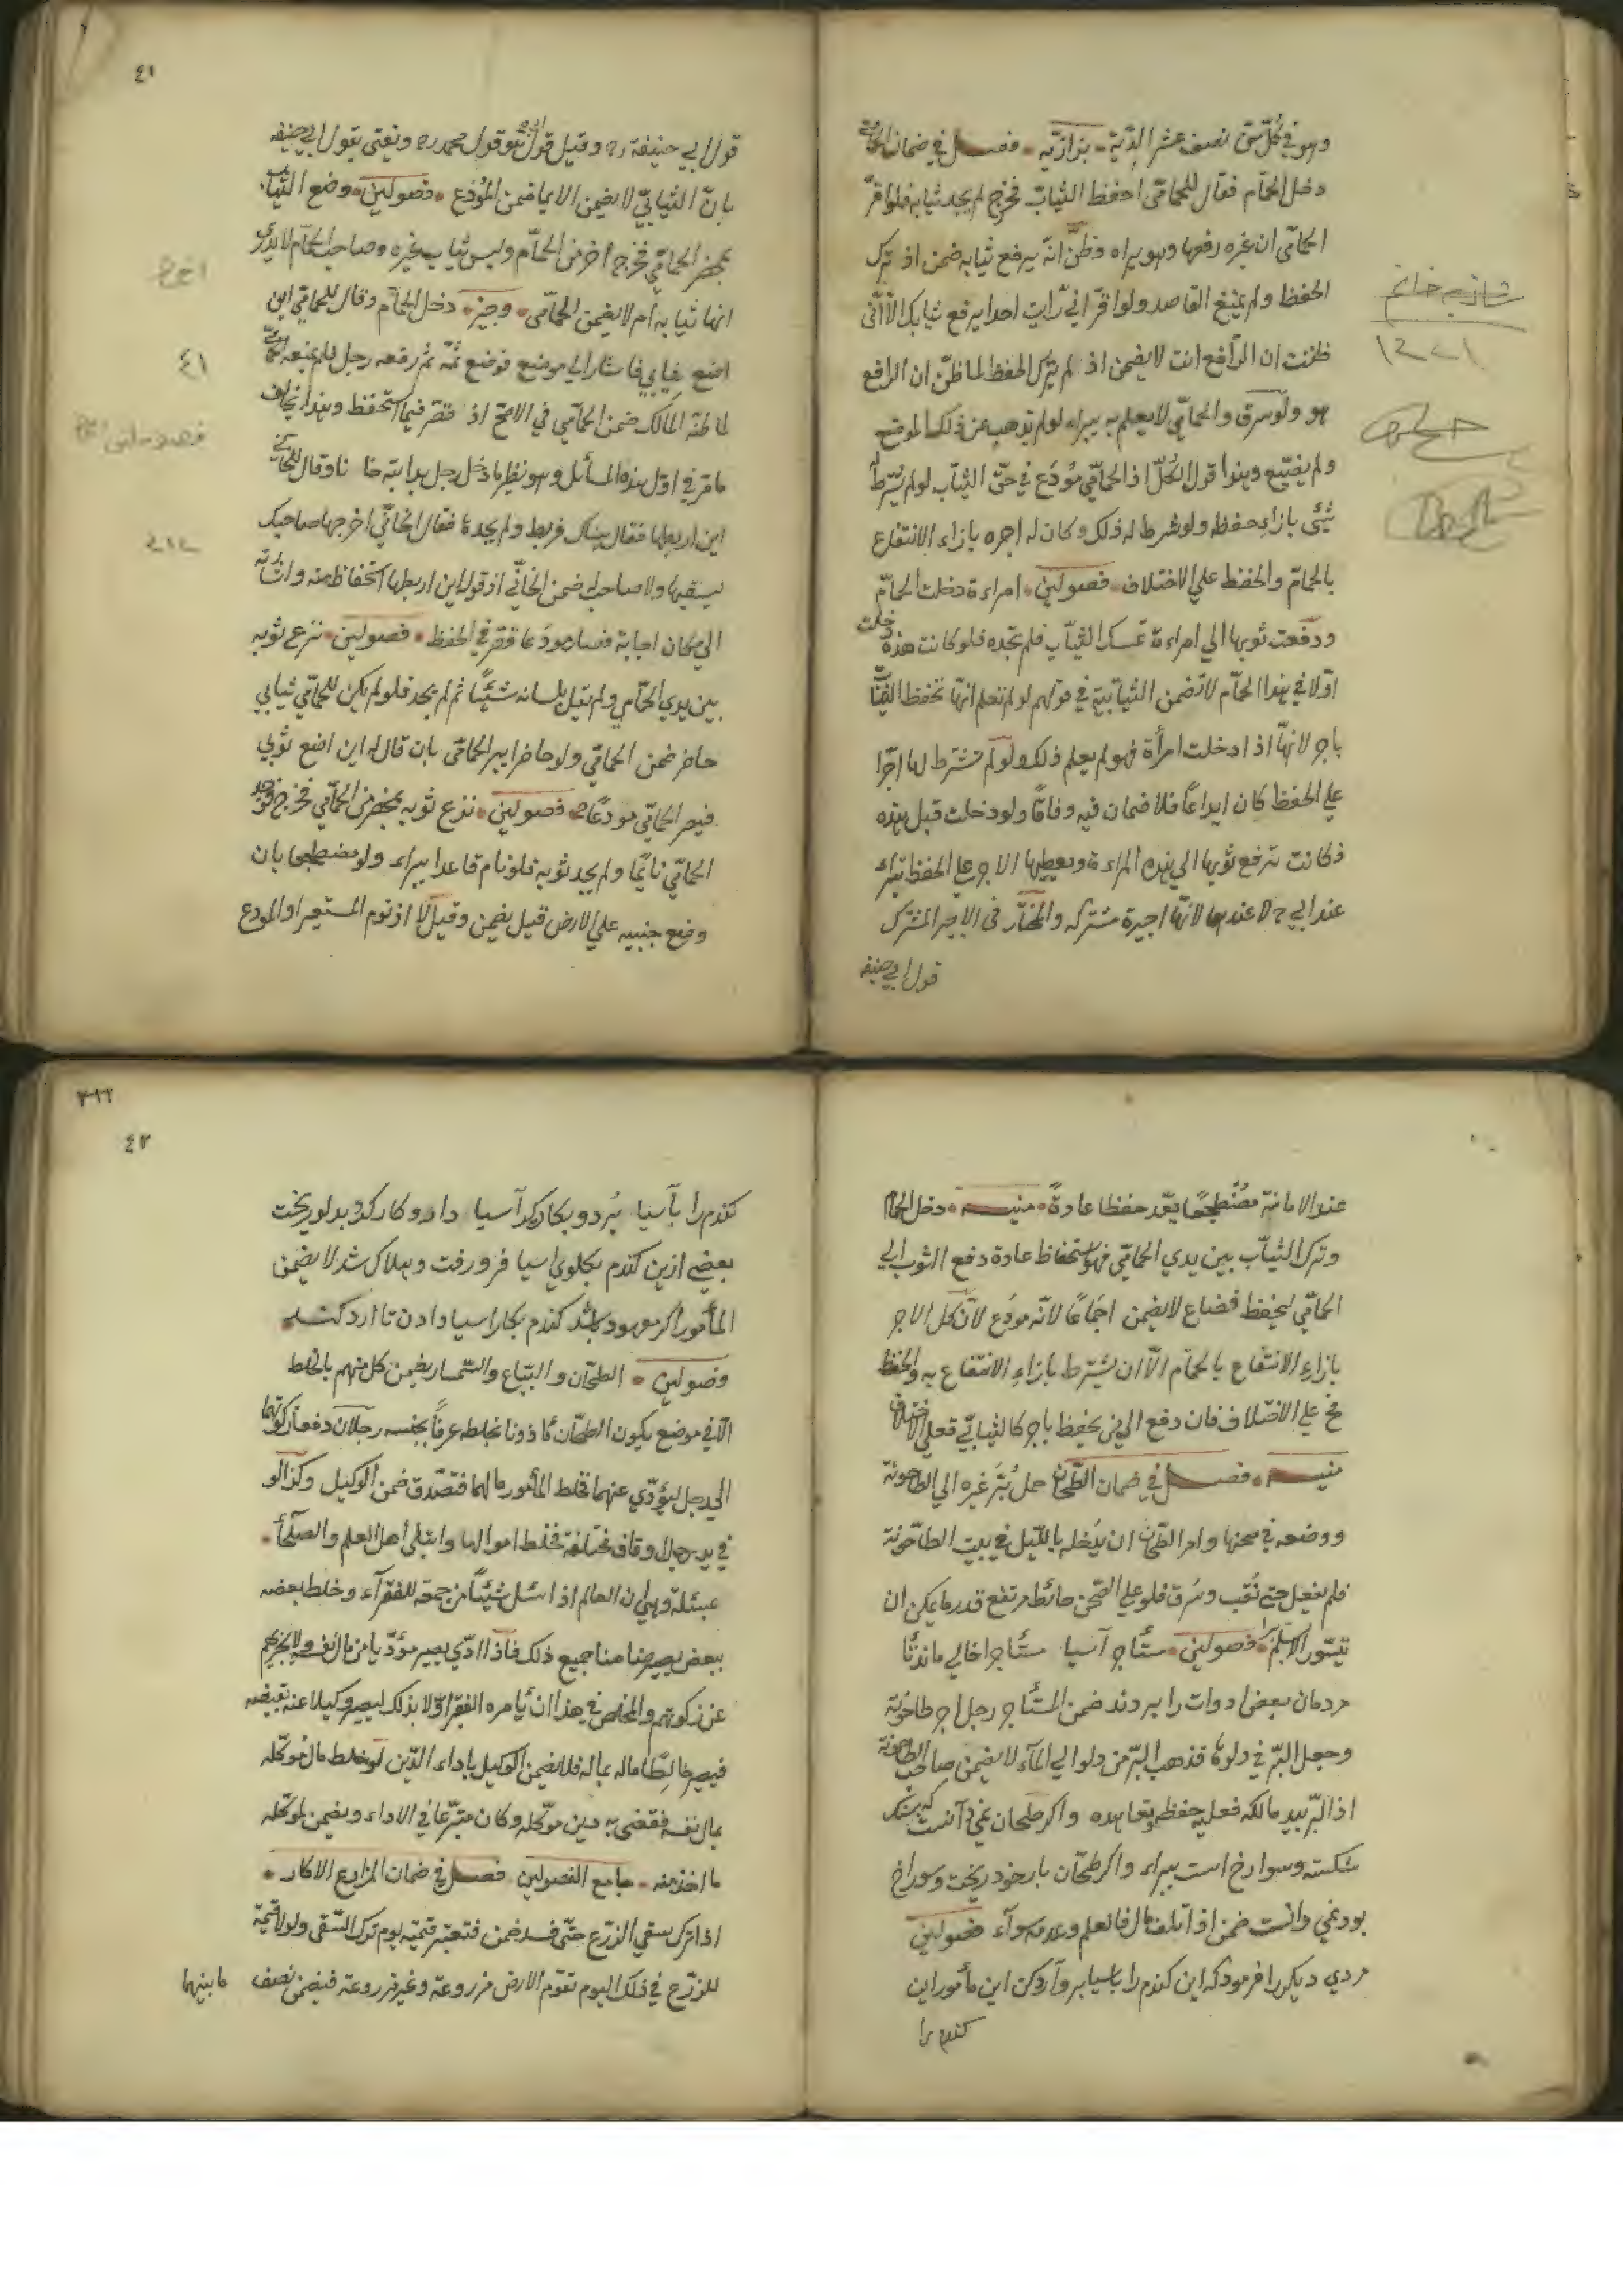 وهو في كل سن نصف عشر الدية • بزازية • فصل في ضمان الحمامي
دخل الحمام فقال للحمامي احفظ الثياب فخرج لم يجد ثيابه فلو اقر
الحمامي ان غيره رفعها وهو يراه وظن انه يرفع ثيابه ضمن اذ ترك
الحفظ ولم يمنع القاصد ولو اقر اني رايت احدا يرفع ثيابك الا اني
ظننت ان الرافع انت لا يضمن اذ لم يترك الحفظ لما ظن ان الرافع
هو ولو سرق والحمامي لا يعلم به يبراء لو لم يذهب عن ذلك الموضع
ولم يضيع وهذا قول الكل اذ الحمامي مودع في حق الثياب لو لم يشرط
شئ بازاء حفظه ولو شرط له ذلك وكان له اجره بازاء الانتفاع
بالحمام والحفظ علي الاختلاف • فصولين • امراءة دخلت الحمام
ودفعت ثوبها الي امراءة تمسك الثياب فلم تجده فلو كانت هذه دخلت
اولا في هذا الحمام لا تضمن الثيابية في قولهم لو لم تعلم انها تحفظ الثياب
باجر لانها اذا دخلت امرأة فهو لم يعلم ذلك ولو لم تشترط لها اجرا
علي الحفظ كان ايداعا فلا ضمان فيه وفاقا ولو دخلت قبل هذه
فكانت ترفع ثوبها الي هذه المراءة ويعطيها الاجر علي الحفظ تبراء
عند ابي ح لا عندهما لانها اجيرة مشتركه والمختار في الاجير المشترك
قول ابي حنيفه
٤١
قول ابي حنيفة رح وقيل قول محمد رح ونفتي بقول ابي حنيفه
بان الثيابي لا يضمن الا بما ضمن المودع • فصولين • وضع الثياب
بمحضر الحمامي فخرج آخر من الحمام ولبس ثياب غيره وصاحب الحمام لا يدري
انها ثيابه ام لا يضمن الحمامي • وجيز • دخل الحمام وقال للحمامي اين
اضع ثيابي فاشار الي موضع فوضع ثمه ثم رفعه رجل فلم يمنعه الحمامي
لما ظنه المالك ضمن الحمامي في الاصح اذ قصر فيما استحفظ وهذا يخالف
ما مر في اول هذه المسائل وهو نظير ما دخل رجل بدابته خانا وقال للخاني
اين اربطها فقال هناك فربط ولم يجدها فقال الخاني اخرجها صاحبك
ليسقيها ولا صاحب له ضمن الخاني اذ قوله اين اربطها استحفاظ منه واشارته
الي مكان اجابة فصار مودعا قصر في الحفظ • فصولين • نزع ثوبه
بين يدي الحمامي ولم يقل بلسانه شيئا ثم لم يجد فلو لم يكن للحمامي ثيابي
حاضر ضمن الحمامي ولو حاضرا يبرا الحمامي بان قال له اين اضع ثوبي
فيصر الحمامي مودعا • فصولين • نزع ثوبه بمحضر من الحمامي فخرج فوجد
الحمامي نائما ولم يجد ثوبه فلو نام قاعدا يبراء ولو مضطجعا بان
وضع جنبيه علي الارض قيل يضمن وقيل لا اذ نوم المستعير او المودع
عند الامانة مضطجعا يعد حفظا عادة • منيه • دخل الحمام
وترك الثياب بين يدي الحمامي فهو استحفاظ عادة دفع الثوب الي
الحمامي ليحفظ فضاع لا يضمن اجماعا لانه مودع لان كل الاجر
بازاء الانتفاع بالحمام الا ان يشترط بازاء الانتفاع به والحفظ
فح علي الاختلاف فان دفع الي من يحفظ باجر كالثيابي فعلي الاختلاف
منيه • فصل في ضمان الطحان حمل بر غيره الي الطاحونة
ووضعه في صحنها وامر الطحان ان يدخله بالليل في بيت الطاحونة
فلم يفعل حتي نقب وسرق فلو علي الصحن حائط مرتفع قدر ما يمكن ان
يتسور الا بسلم • فصولين • مستأجر آسيا
مردمان بعض ادوات را بردند ضمن المستأجر رجل اجر طاحونة
وجعل البر في دلوه فذهب البر من دلو الي الماء لا يضمن صاحب الطاحونة
اذ البر بيد مالكه فعليه حفظه وتعاهده واكر طحان نمي دانست كه
شكسته وسوراخ است يبراء واكر طحان بار خود ريخت وسوراخ
بود نمي دانست ضمن اذ اتلف مال فالعلم وعدمه سواء فصولين
مردي ديكر را فرمود كه اين كندم را باسيا بر وآرد كن اين مأمور اين
كندم را
٤٢
كندم را بآسيا برد و بكاركرد آسيا
بعضي ازين كندم بكلوي اسيا فرو رفت وهلاك شد لا يضمن
المأمور اكر معهود باشد كندم بكار اسيا دادن تا ارد كند •
فصولين • الطحان والبياع والسمسار يضمن كل منهم بالخلط
الا في موضع يكون الطحان مأذونا بخلطه عرفا بجنسه رجلان دفعا زكوتهما
الي رجل ليؤدي عنهما فخلط المأمور مالهما فتصدق ضمن الوكيل وكذا لو
في يد رجل اوقاف مختلفة فخلط اموالها وابتلي اهل العلم والصلحاء •
بمسئلة وهي ان العالم اذا سئل شيئا من جمعه للفقراء وخلط بعضه
ببعض يصير ضامنا جميع ذلك فاذا ادي يصير مؤديا من مال نفسه ولا يجزيهم
عن زكوتهم والمخلص في هذا ان يأمره الفقير اولا بذلك ليصير وكيلا عنه بقبضه
فيصير خالطا ماله بماله فلا يضمن الوكيل باداء الدين لو خلط مال موكله
بمال نفسه فقضي به دين موكله وكان متبرعا في الاداء ويضمن لموكله
ما اخذ منه • جامع الفصولين فصل في ضمان المزارع الاكار •
اذا ترك سقي الزرع حتي فسد ضمن فتعتبر قيمته يوم ترك السقي ولو لا قيمة
للزرع في ذلك اليوم تقوم الارض مزروعة وغير مزروعة فيضمن نصف ما بينهما